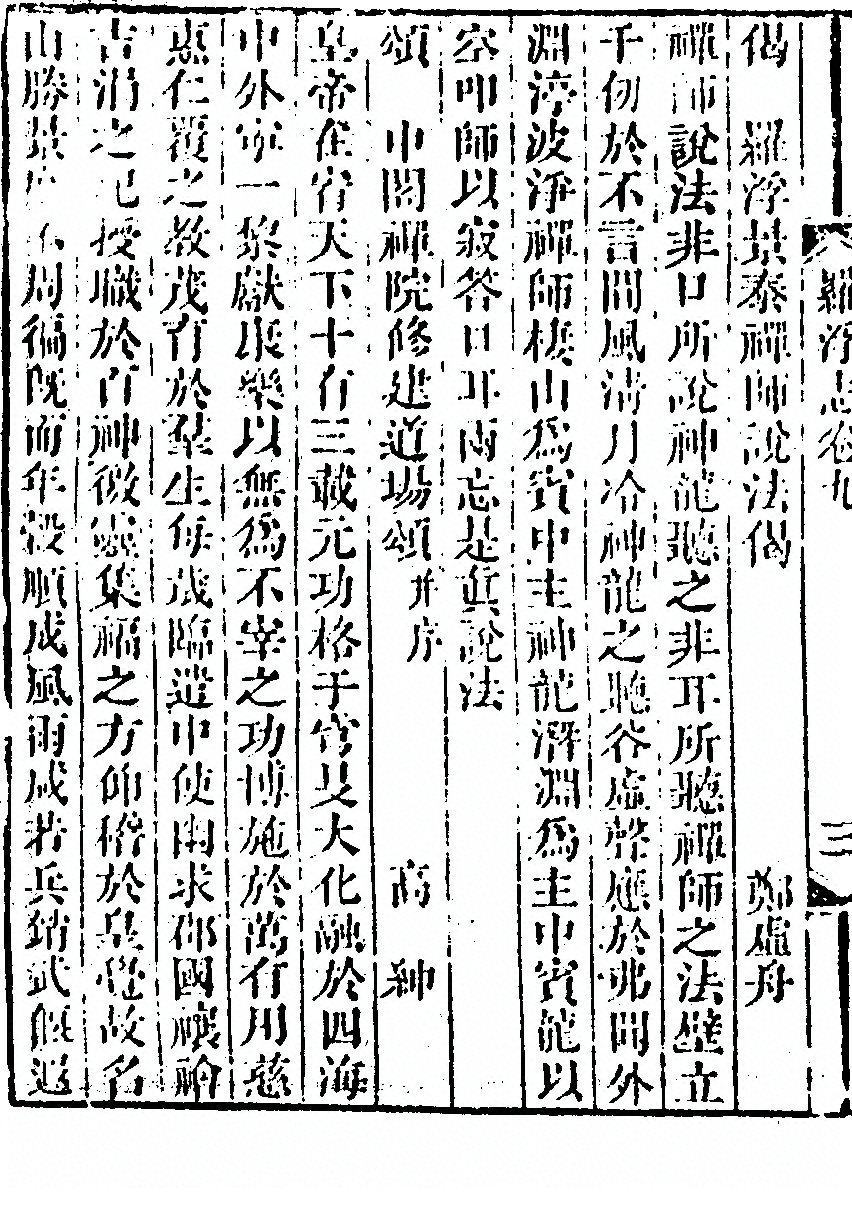 羅浮志卷九
三
偈　羅浮景泰禪師說法偈　鄭虛舟
禪師說法非口所說神龍聽之非耳所聽禪師之法壁立
千仞於不言間風清月冷神龍之聽谷虛聲應於弗聞外
淵渟波淨禪師棲山爲賓中主神龍潛淵爲主中賓龍以
空叩師以寂答口耳兩忘是眞說法
頌　中閣禪院修建道場頌并序　高紳
皇帝在宥天下十有三載元功格于穹旻大化融於四海
中外寧一黎獻康樂以無爲不宰之功博施於萬有用慈
惠仁覆之教茂育於羣生每歲臨遣中使旁求郡國禳禬
吉涓之祀授職於百神徼靈集福之方仰稽於皇覺故名
山勝景 周徧旣而年穀順成風雨咸若兵銷武偃遐